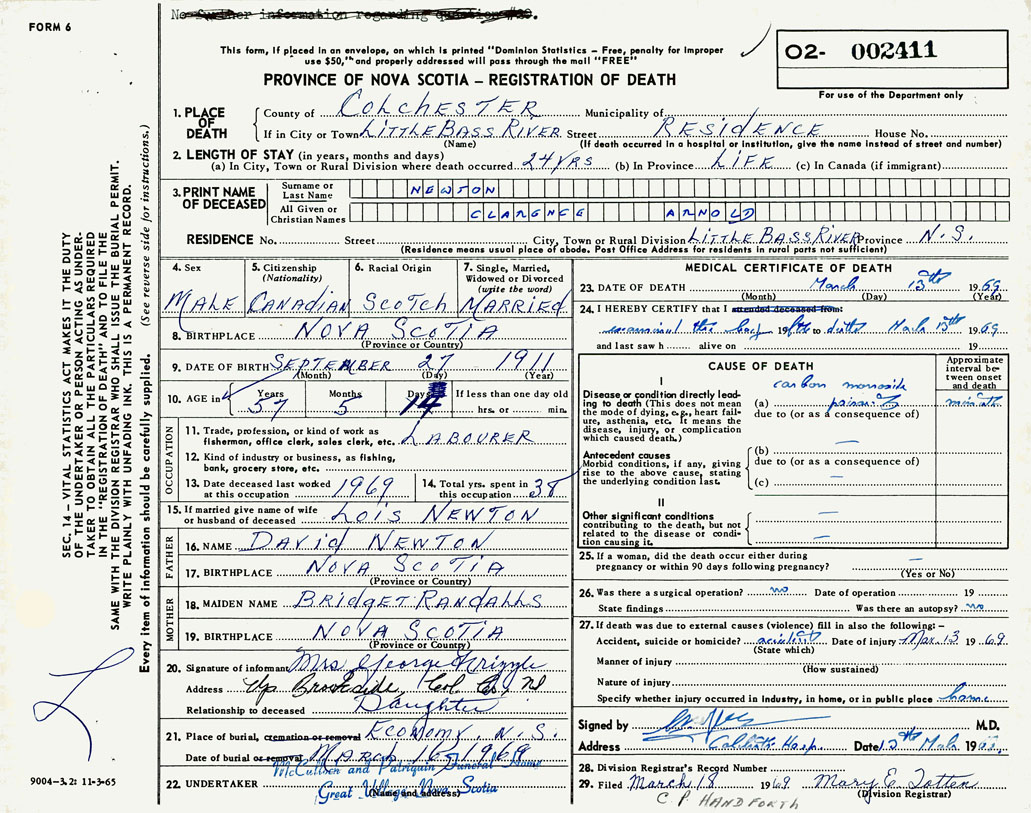 FORM 6
No further information regarding question #30.
This form, if placed in an envelope, on which is printed "Dominion Statistics – Free, penalty for improper
use $50," and properly addressed will pass through the mail "FREE"
PROVINCE OF NOVA SCOTIA – REGISTRATION OF DEATH
02- 002411
For use of the Department only
SEC. 14 – VITAL STATISTICS ACT MAKES IT THE DUTY
OF THE UNDERTAKER OR PERSON ACTING AS UNDER-
TAKER TO OBTAIN ALL THE PARTICULARS REQUIRED
IN THE "REGISTRATION OF DEATH" AND TO FILE THE
SAME WITH THE DIVISION REGISTRAR WHO SHALL ISSUE THE BURIAL PERMIT.
WRITE PLAINLY WITH UNFADING INK. THIS IS A PERMANENT RECORD.
Every item of information should be carefully supplied. (See reverse side for instructions.)
1. PLACE OF DEATH
County of COLCHESTER Municipality of
If in City or Town LITTLE BASS RIVER Street RESIDENCE House No.
(Name) (If death occurred in a hospital or institution, give the name instead of street and number)
2. LENGTH OF STAY (in years, months and days)
(a) In City, Town or Rural Division where death occurred 24 YRS (b) In Province LIFE (c) In Canada (if immigrant)
3. PRINT NAME OF DECEASED
Surname or Last Name NEWTON
All Given or Christian Names CLARENCE ARNOLD
RESIDENCE No. Street City, Town or Rural Division LITTLE BASS RIVER Province N.S.
(Residence means usual place of abode. Post Office Address for residents in rural parts not sufficient)
4. Sex 5. Citizenship (Nationality) 6. Racial Origin 7. Single, Married, Widowed or Divorced (write the word)
MALE CANADIAN SCOTCH MARRIED
8. BIRTHPLACE NOVA SCOTIA
(Province or Country)
9. DATE OF BIRTH SEPTEMBER 27 1911
(Month) (Day) (Year)
10. AGE in Years Months Days If less than one day old
57 5 14 hrs. or min.
OCCUPATION
11. Trade, profession, or kind of work as
fisherman, office clerk, sales clerk, etc. LABOURER
12. Kind of industry or business, as fishing,
bank, grocery store, etc.
13. Date deceased last worked
at this occupation 1969
14. Total yrs. spent in
this occupation 38
15. If married give name of wife
or husband of deceased LOIS NEWTON
FATHER
16. NAME DAVID NEWTON
17. BIRTHPLACE NOVA SCOTIA
(Province or Country)
MOTHER
18. MAIDEN NAME BRIDGET RANDALLS
19. BIRTHPLACE NOVA SCOTIA
(Province or Country)
20. Signature of informant Mrs George
Address Up Brookside, Col. Co., NS
Relationship to deceased Daughter
21. Place of burial, cremation or removal ECONOMY, N.S.
Date of burial or removal MARCH 16, 1969
McCulloch and Patriquin Funeral Home
22. UNDERTAKER Great Village Nova Scotia
(Name and address)
9004–3.2: 11-3-65
MEDICAL CERTIFICATE OF DEATH
23. DATE OF DEATH March 13th 1969
(Month) (Day) (Year)
24. I HEREBY CERTIFY that I attended deceased from:
examined the body 19 after death March 13th 1969
and last saw h alive on 19
CAUSE OF DEATH
Approximate interval between onset and death
I
Disease or condition directly lead-
ing to death (This does not mean
the mode of dying, e.g., heart fail-
ure, asthenia, etc. It means the
disease, injury, or complication
which caused death.)
carbon monoxide
(a) poisoning minutes
due to (or as a consequence of)
Antecedent causes
Morbid conditions, if any, giving
rise to the above cause, stating
the underlying condition last.
(b) —
due to (or as a consequence of)
(c) —
II
Other significant conditions
contributing to the death, but not
related to the disease or condi-
tion causing it.
25. If a woman, did the death occur either during
pregnancy or within 90 days following pregnancy? —
(Yes or No)
26. Was there a surgical operation? no Date of operation 19
State findings Was there an autopsy? no
27. If death was due to external causes (violence) fill in also the following:–
Accident, suicide or homicide? accident Date of injury Mar. 13 1969.
(State which)
Manner of injury
(How sustained)
Nature of injury
Specify whether injury occurred in industry, in home, or in public place home
Signed by M.D.
Address Date 19
28. Division Registrar's Record Number
29. Filed March 18 1969 Mary E. Totten
(Division Registrar)
C. P. HANDFORTH